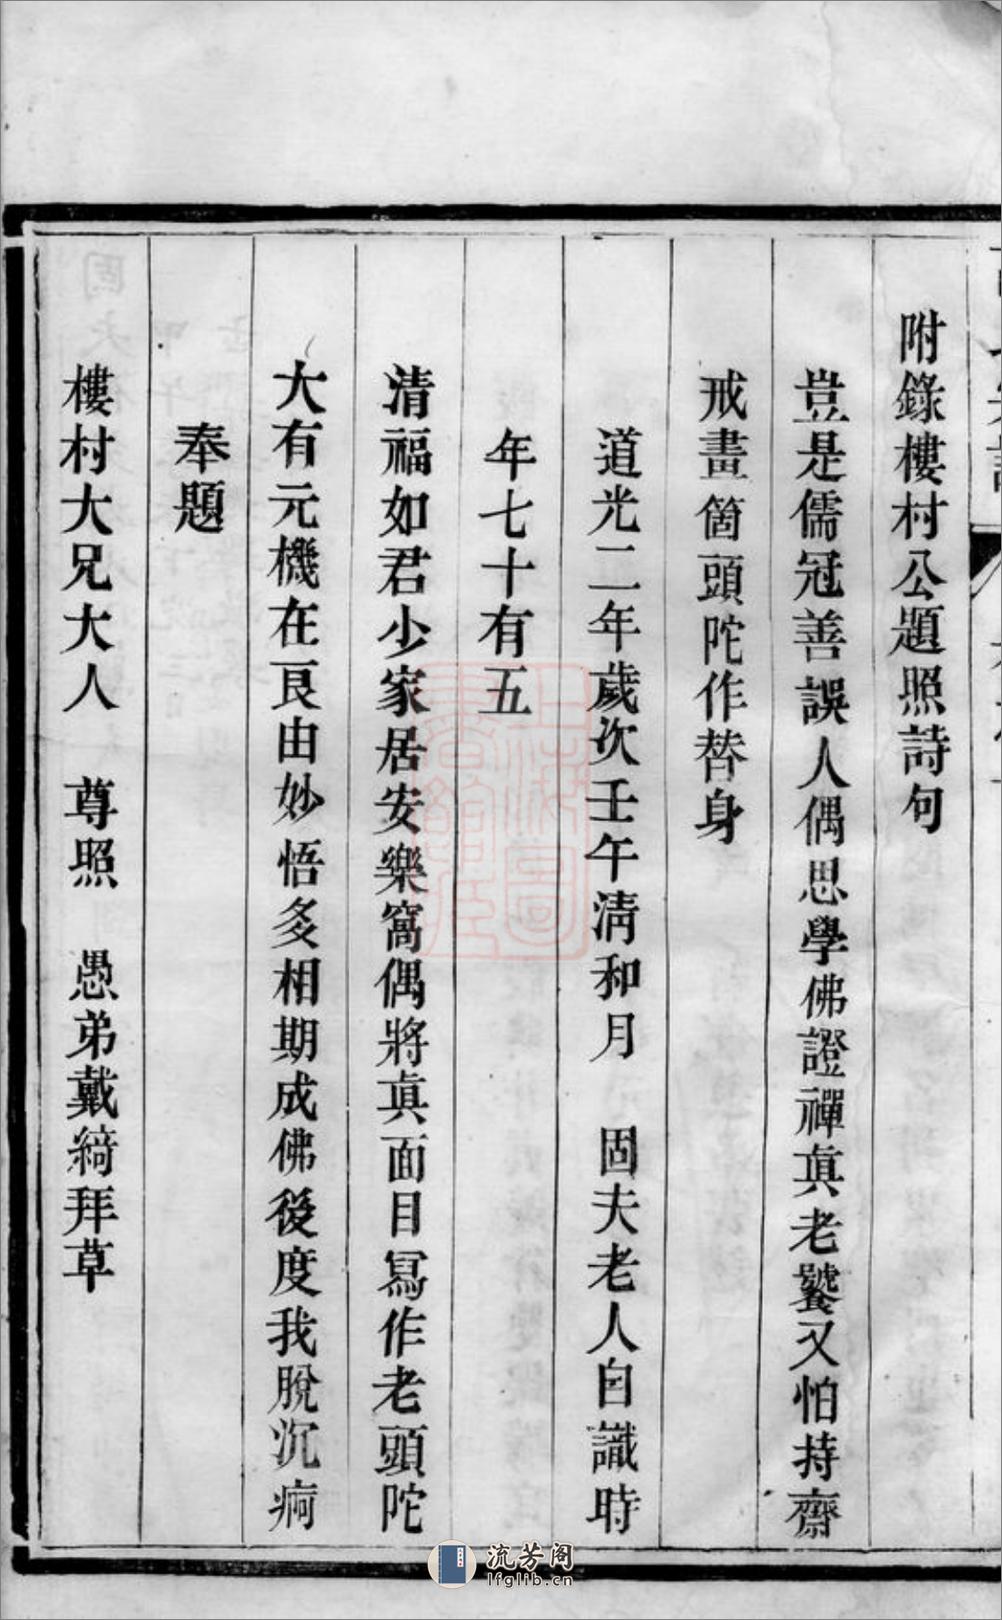 附錄樓村公題照詩句
豈是儒冠善誤人偶思學佛證禪眞老饕又怕持齋
戒畫箇頭陀作替身
道光二年歲次壬午淸和月　固夫老人自識時
年七十有五
淸福如君少家居安樂窩偶將眞面目寫作老頭陀
大有元機在艮由妙悟多相期成佛後度我脫沉痾
奉題
樓村大兄大人　尊照　愚弟戴綺拜草
流芳阁
lfglib.cn